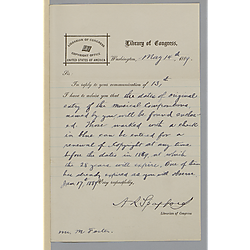 LIBRARY OF CONGRESS
COPYRIGHT OFFICE
UNITED STATES OF AMERICA
Library of Congress,
Washington, May 14th, 1889.
Sir:
In reply to your communication of 13th
I have to advise you that the dates of original
entry of the musical compositions
named by you will be found
Those marked with a check
in blue can be entered for a
renewal of copyright at any time
before the dates in 1889, at which
the 28 years will expire. One of them
has already expired as you will observe
Jany 17th 1889
Very respectfully,
A R Spofford
Librarian of Congress
Mrs. M. Foster.